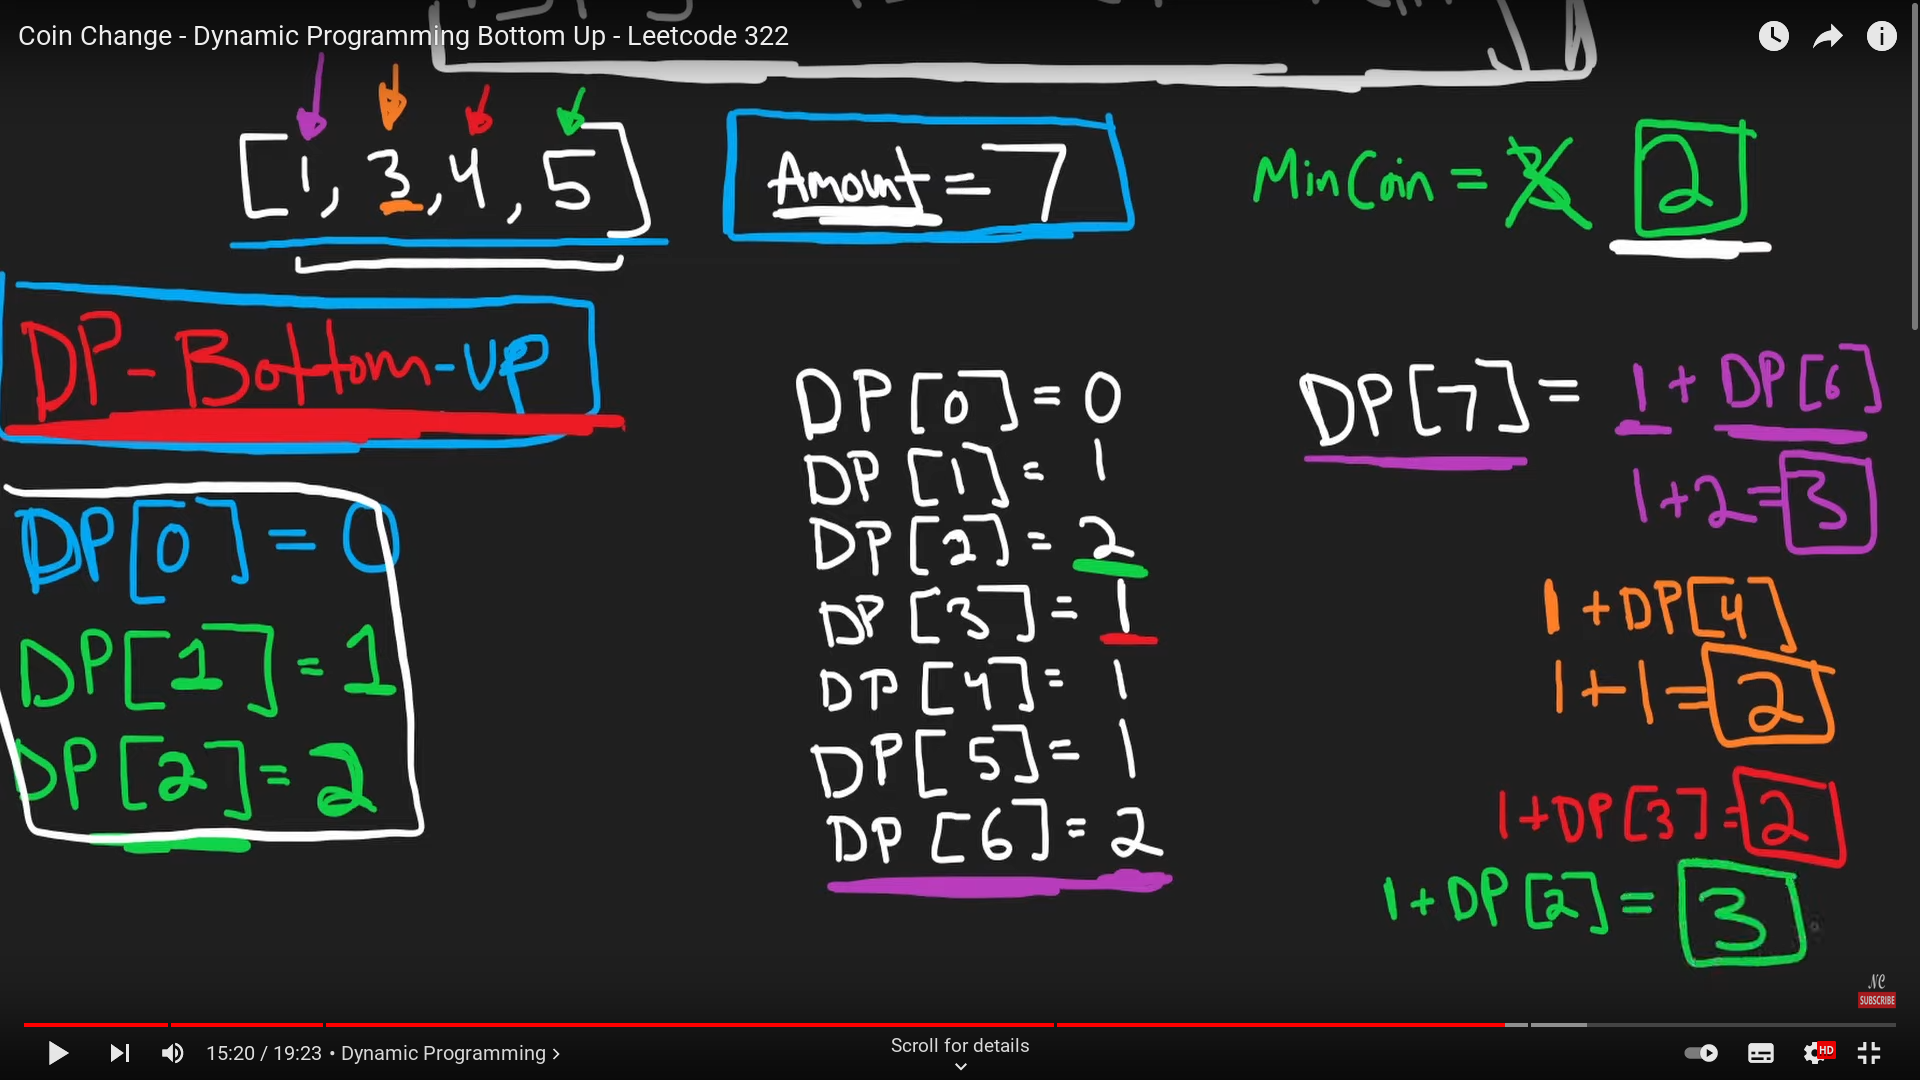 Coin Change - Dynamic Programming Bottom Up - Leetcode 322
[1, 3, 4, 5]
Amount = 7
MinCoin = 2
DP-Bottom-UP
DP[0] = 0
DP[1] = 1
DP[2] = 2
DP[0] = 0
DP[1] = 1
DP[2] = 2
DP[3] = 1
DP[4] = 1
DP[5] = 1
DP[6] = 2
DP[7] = 1 + DP[6]
1+2=3
1 + DP[4]
1+1=2
1+DP[3]=2
1+DP[2] = 3
NC
SUBSCRIBE
15:20 / 19:23 • Dynamic Programming >
Scroll for details
HD